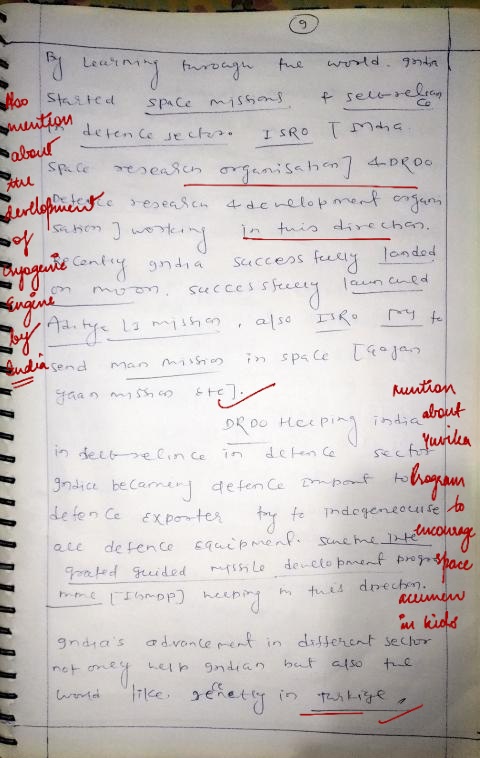 9
By Learning through the world. India
started space missions & self-relian
ce
in defence sector. ISRO [India
space research organisation] & DRDO
[Defence research & development organi
sation] working in this direction.
Recently India successfully landed
on moon. successfully launched
Aditya L1 mission, also ISRO try to
send man mission in space [Gagan
yaan mission etc].
DRDO Helping india
in self-relince in defence sector
India becaming defence import to
defence exporter try to indogeneouise
all defence equipment. Scheme Inte
grated guided missile development progra
mme [IGMDP] helping in this direction.
India's advancement in different sector
not only help Indian but also the
world like. recently in turkiye.
Also
mention
about
the
development
of
cryogenic
Engine
by
India
mention
about
Yuvika
Program
to
encourage
space
acumen
in kids